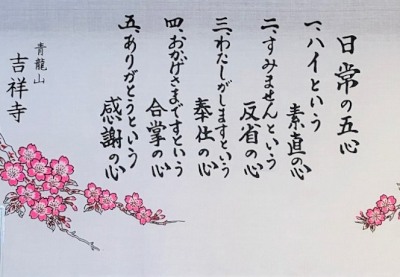 日常の五心
一、ハイという
素直の心
二、すみませんという
反省の心
三、わたしがしますという
奉仕の心
四、おかげさまですという
合掌の心
五、ありがとうという
感謝の心
青龍山
吉祥寺